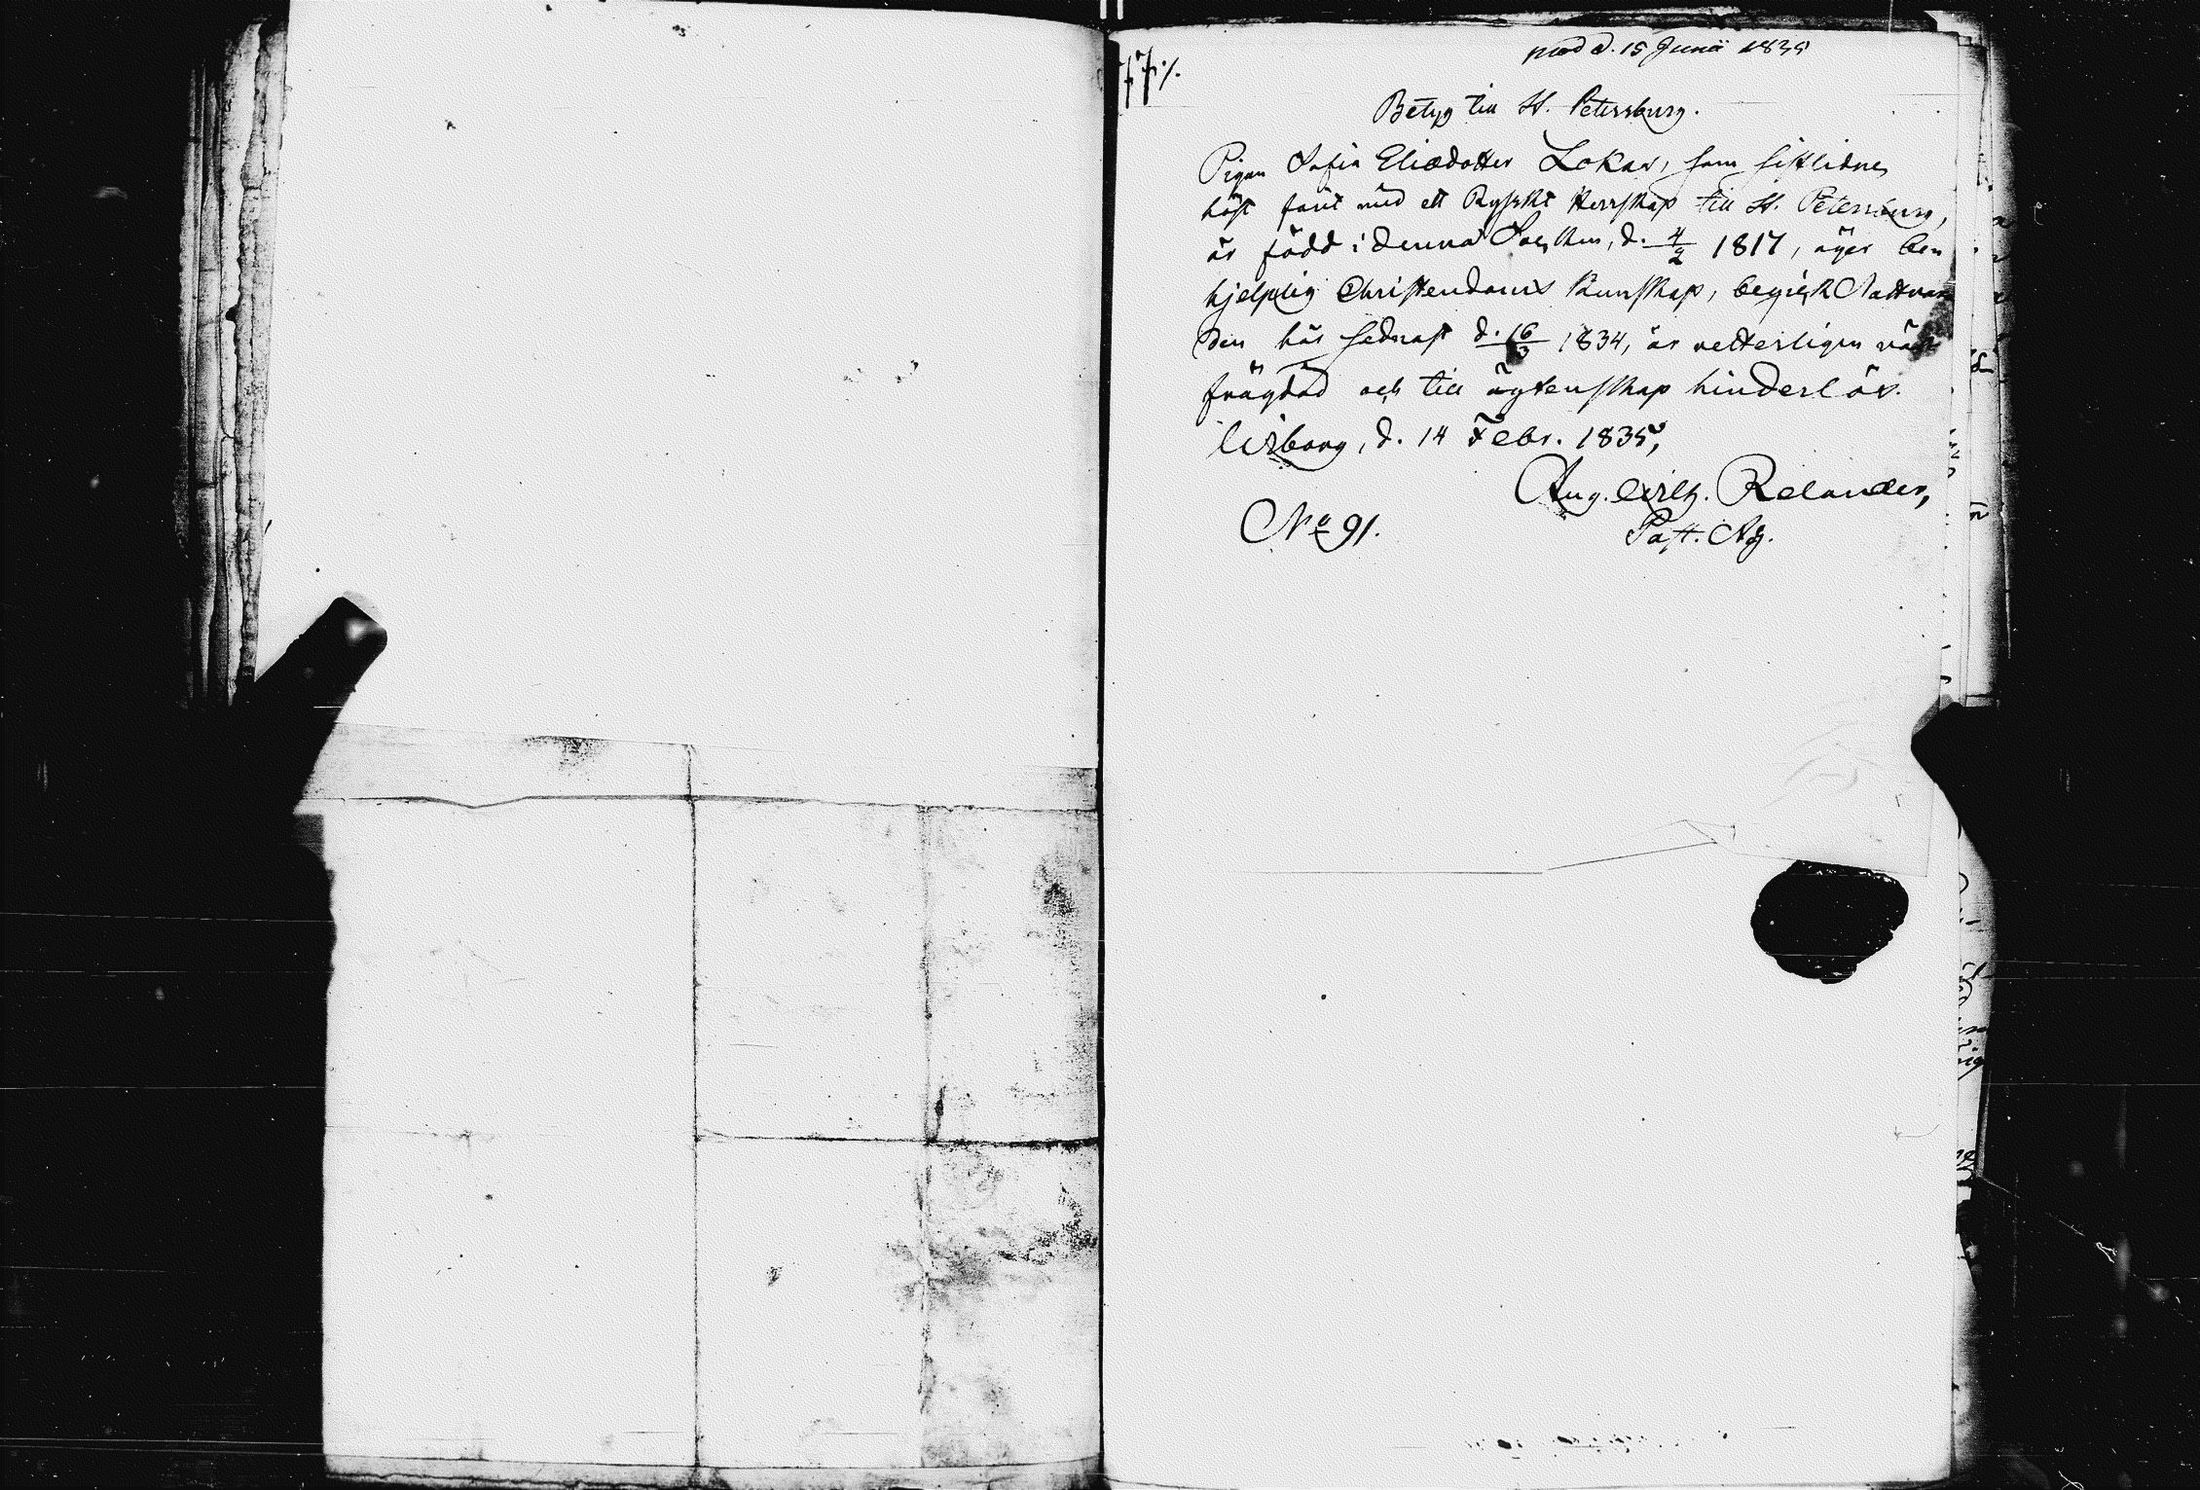 prod d. 15 Junii 1835
77./.
Betyg till St. Petersburg.
Pigan Sofia Eliædotter Lokar, som sistlidne
höst farit med ett Ryskt Herrskap till St. Petersburg,
är född i denna Socken, d. 4/2 1817, äger ben
hjelplig Christendoms Kunskap, begick Nattvar
den här sednast d. 16/3 1834, är vetterligen väl
frägdad och till ägtenskap hinderlös.
d. 14 Febr. 1835,
Aug. Wilh. Relander,
No 91.
Past. Adj.